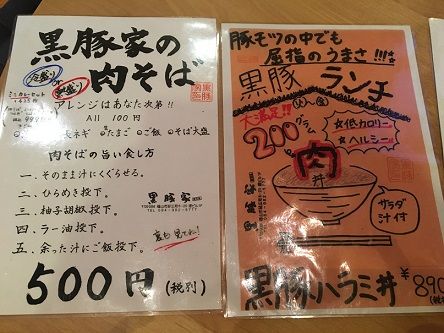 黒豚家の
肉そば
冷盛り
ミニカレーセット
アレンジはあなた次第!!
All 100円
大ネギ
たまご
ご飯
そば大盛
肉そばの旨い食し方
一、そのまま汁にくぐらせる。
二、ひらめき投下。
三、柚子胡椒投下。
四、ラー油投下。
五、余った汁にご飯投下。
黒豚家
裏も見てね!
500円(税別)
豚モツの中でも
屈指のうまさ!!!!
黒豚ランチ
(火)〜(金)
大満足!!
200グラム
☆低カロリー
☆ヘルシー
肉丼
黒豚家
サラダ
汁付
黒豚ハラミ丼
¥890